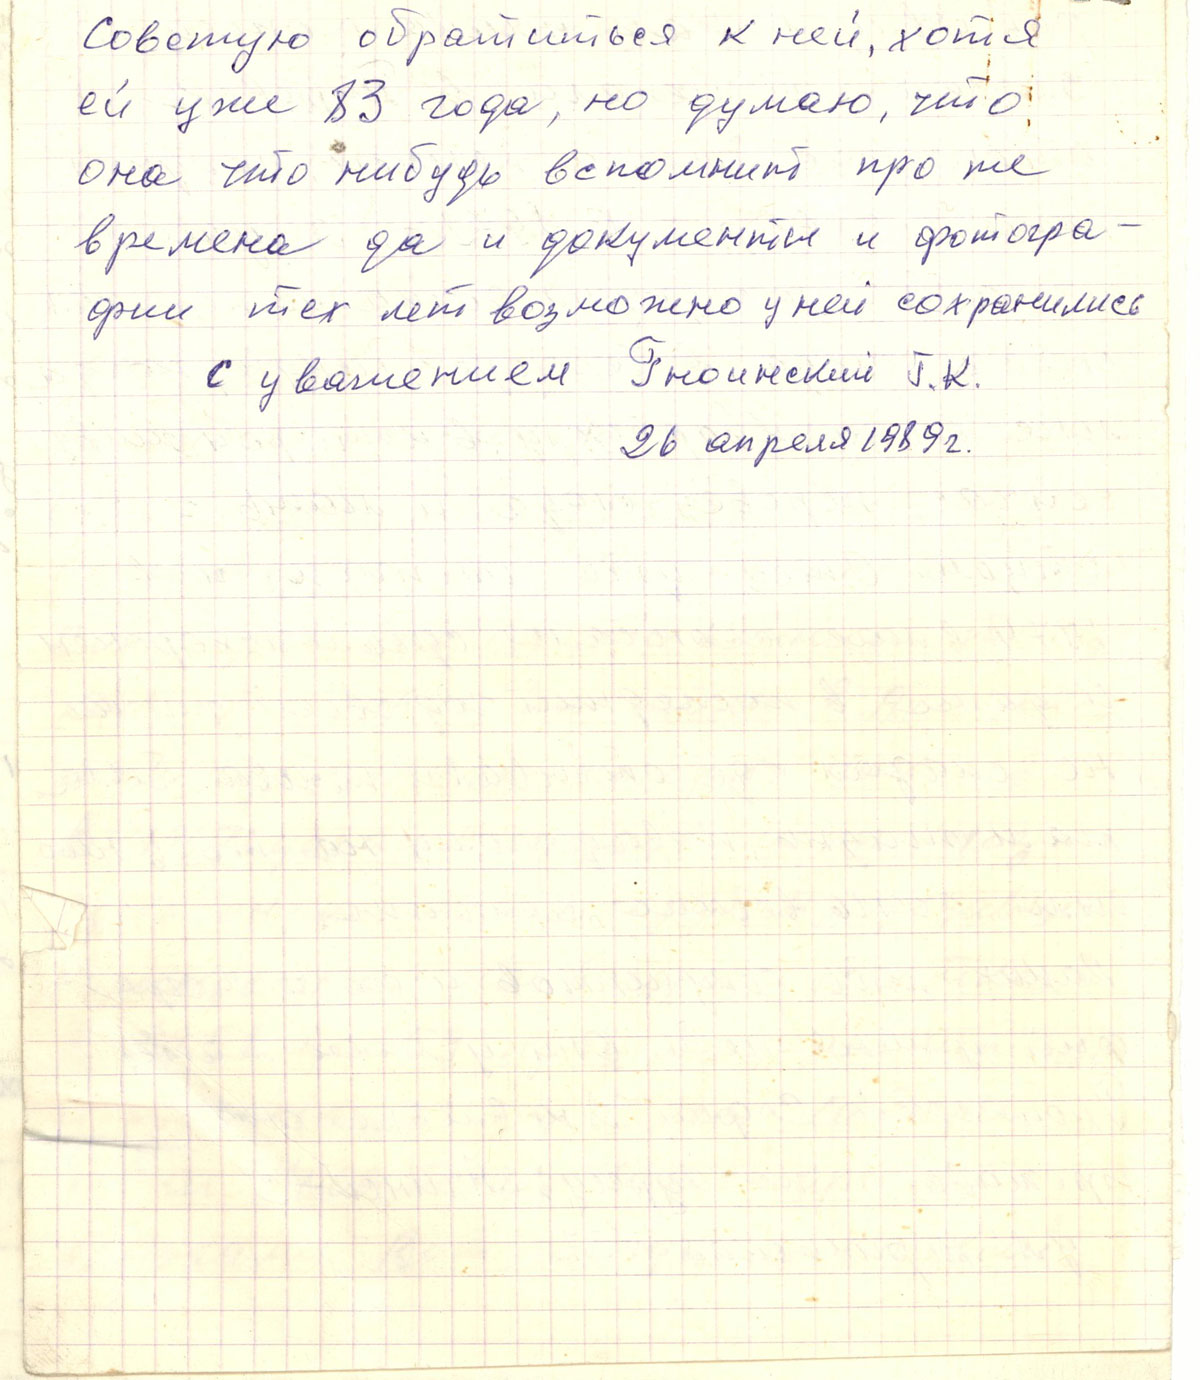 Советую обратиться к ней, хотя
ей уже 83 года, но думаю, что
она что нибудь вспомнит про те
времена да и документы и фотогра-
фии тех лет возможно у ней сохранились
с уважением Гноинский Г.К.
26 апреля 1989 г.